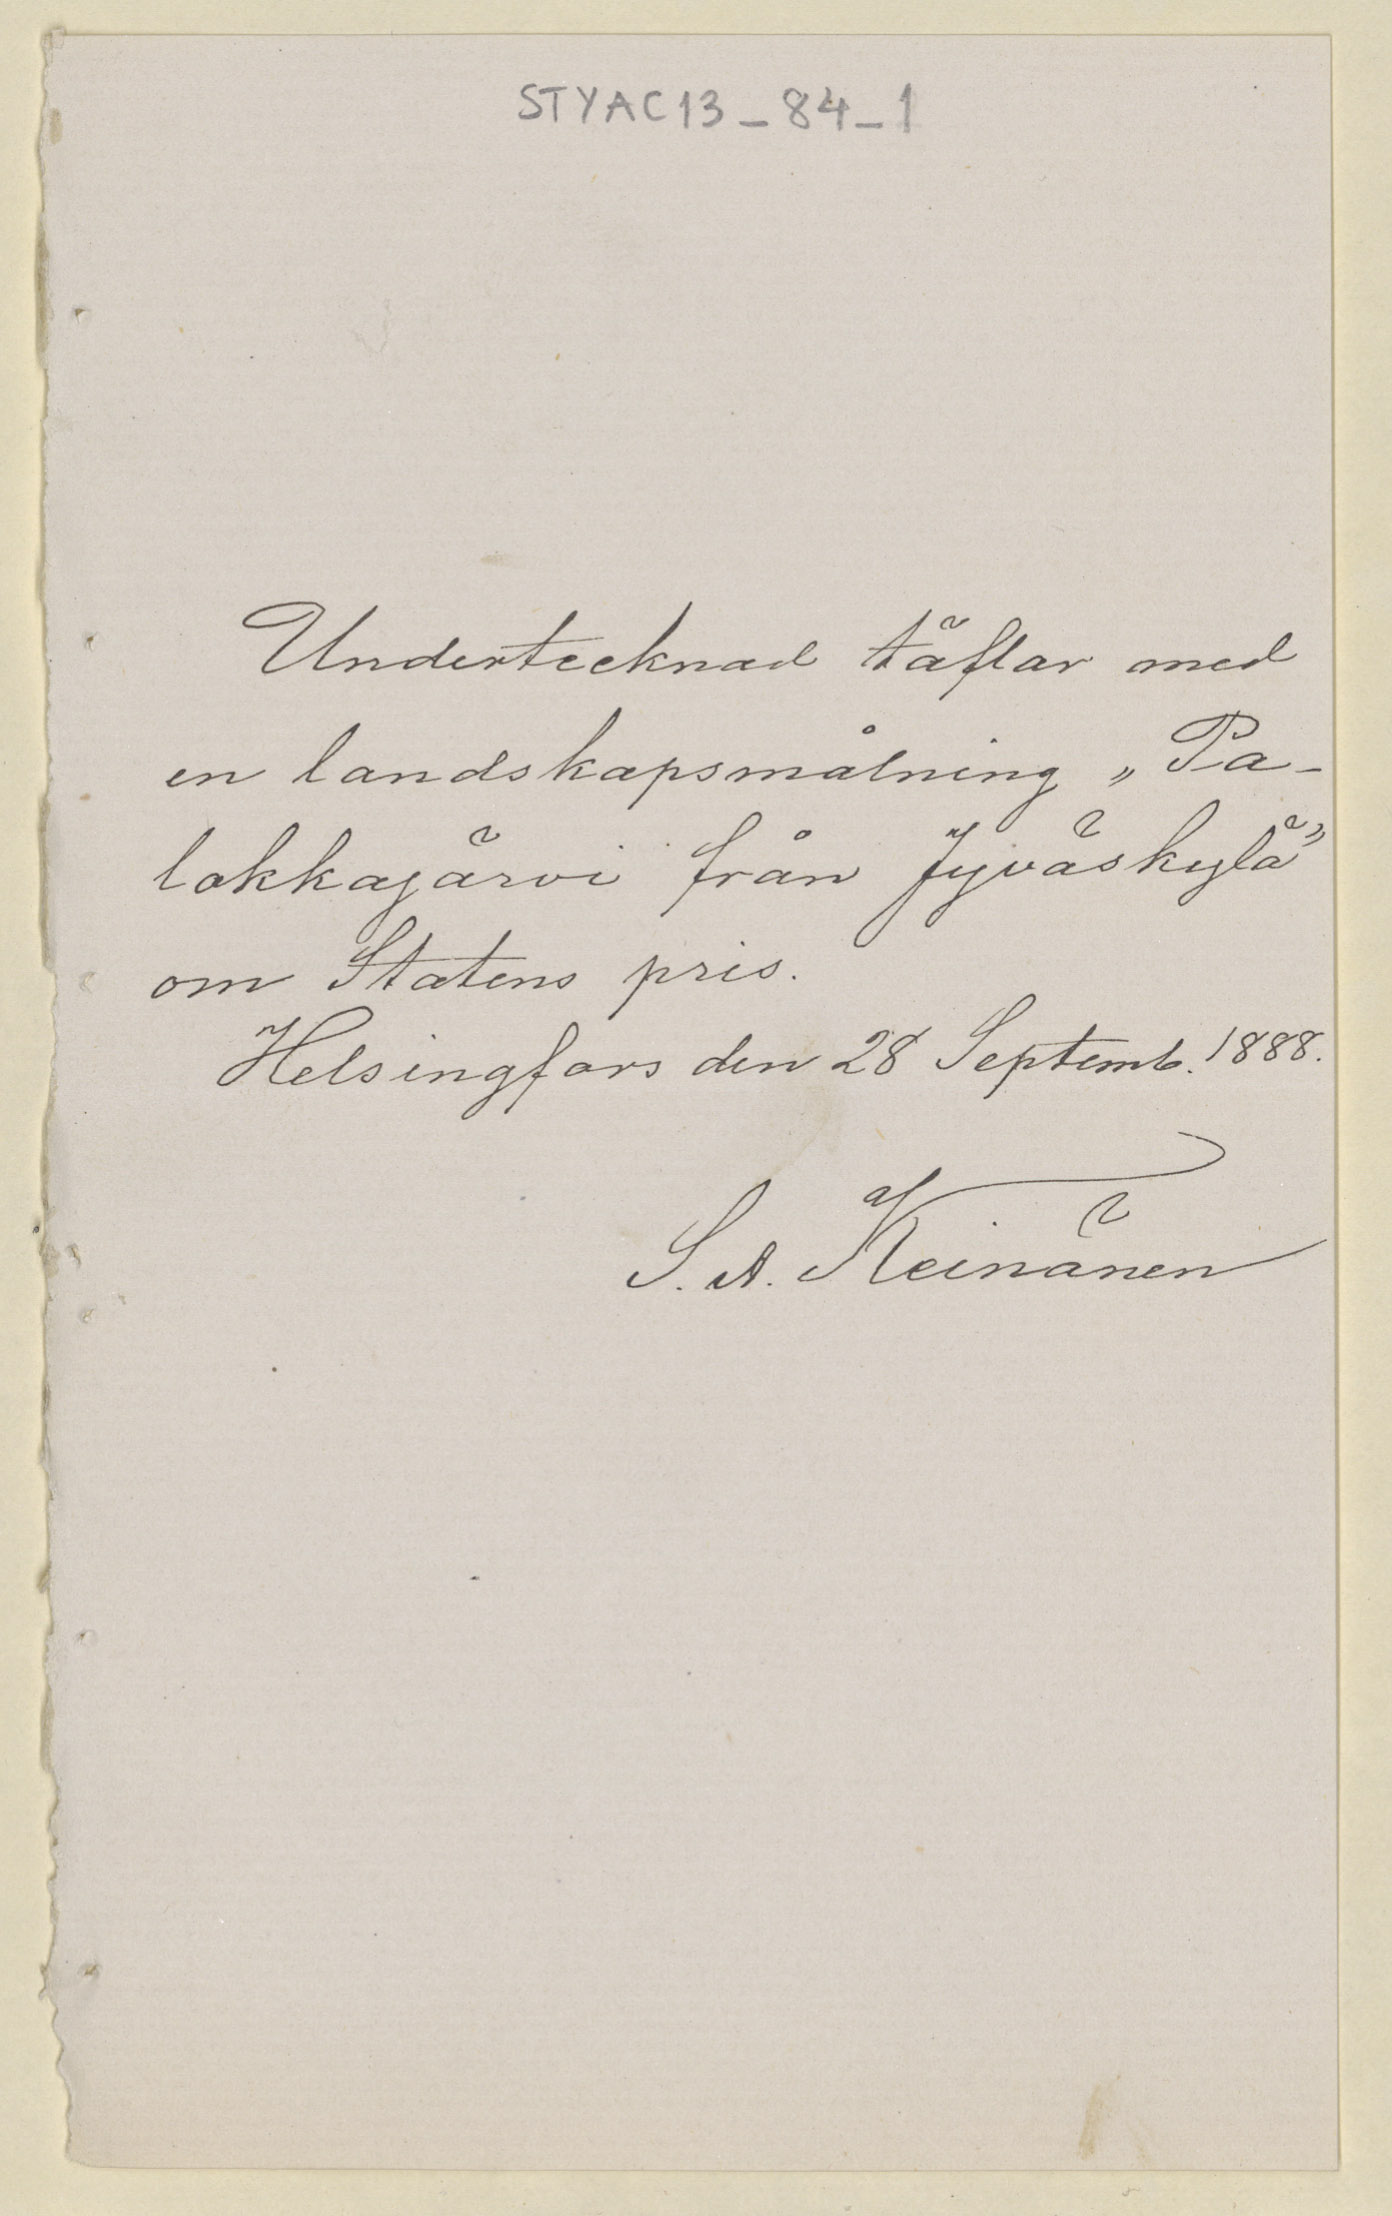 STYAC13_84_1
Undertecknad täflar med
en landskapsmålning „Pa-
lokkajärvi från Jyväskylä”
om Statens pris.
Helsingfors den 28 Septemb. 1888.
S. A. Keinänen